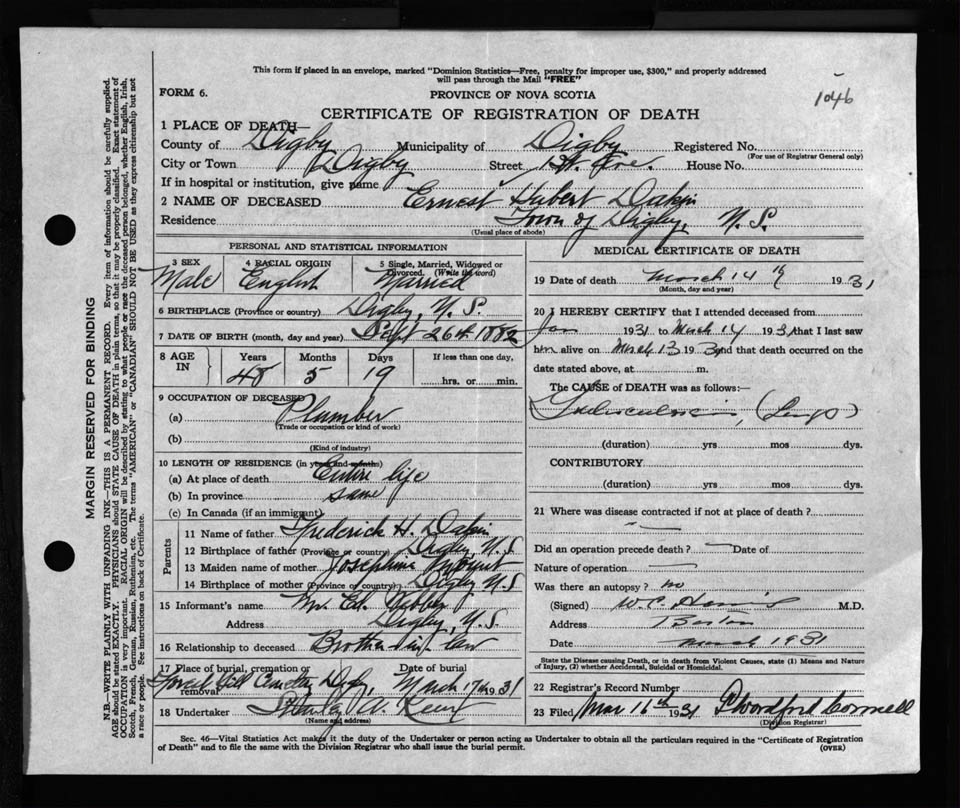 This form if placed in an envelope, marked "Dominion Statistics—Free, penalty for improper use, $300," and properly addressed
will pass through the Mail "FREE"
FORM 6.
PROVINCE OF NOVA SCOTIA
1046
CERTIFICATE OF REGISTRATION OF DEATH
1 PLACE OF DEATH—
County of Digby Municipality of Digby Registered No.
(For use of Registrar General only)
City or Town Digby Street House No.
If in hospital or institution, give name
2 NAME OF DECEASED Ernest Hubert Dakin
Residence Town of Digby, N. S.
(Usual place of abode)
PERSONAL AND STATISTICAL INFORMATION
3 SEX 4 RACIAL ORIGIN 5 Single, Married, Widowed or Divorced. (Write the word)
Male English Married
6 BIRTHPLACE (Province or country) Digby, N. S.
7 DATE OF BIRTH (month, day and year) Sept 26th 1882
8 AGE IN Years Months Days If less than one day,
48 5 19 hrs. or min.
9 OCCUPATION OF DECEASED
(a) Plumber
(Trade or occupation or kind of work)
(b)
(Kind of industry)
10 LENGTH OF RESIDENCE (in years and months)
(a) At place of death Entire life
(b) In province same
(c) In Canada (if an immigrant)
Parents
11 Name of father Frederick H. Dakin
12 Birthplace of father (Province or country) Digby, N. S
13 Maiden name of mother Josephine
14 Birthplace of mother (Province or country) Digby N. S
15 Informant's name Mr. Ed.
Address Digby, N. S.
16 Relationship to deceased Brother-in-law
17 Place of burial, cremation or removal Date of burial
Forest Hill Cemetery Digby, March 17th 1931
18 Undertaker Stanley W.
(Name and address)
MEDICAL CERTIFICATE OF DEATH
19 Date of death March 14th 1931
(Month, day and year)
20 I HEREBY CERTIFY that I attended deceased from
Jan 1931 to March 14 1931 that I last saw
him alive on March 13 193 and that death occurred on the
date stated above, at m.
The CAUSE of DEATH was as follows:—
Tuberculosis, (Lungs)
(duration) yrs mos dys.
CONTRIBUTORY
(duration) yrs. mos. dys.
21 Where was disease contracted if not at place of death?
Did an operation precede death? Date of
Nature of operation
Was there an autopsy? no
(Signed) W. C. M.D.
Address
Date March 1931
State the Disease causing Death, or in death from Violent Causes, state (1) Means and Nature
of Injury, (2) whether Accidental, Suicidal or Homicidal.
22 Registrar's Record Number
23 Filed Mar 16th 1931
(Division Registrar)
Sec. 46—Vital Statistics Act makes it the duty of the Undertaker or person acting as Undertaker to obtain all the particulars required in the "Certificate of Registration
of Death" and to file the same with the Division Registrar who shall issue the burial permit.
(OVER)
MARGIN RESERVED FOR BINDING
N.B.—WRITE PLAINLY WITH UNFADING INK—THIS IS A PERMANENT RECORD. Every item of information should be carefully supplied.
AGE should be stated EXACTLY. PHYSICIANS should STATE CAUSE OF DEATH in plain terms, so that it may be properly classified. Exact statement of
OCCUPATION is very important. RACIAL ORIGIN will be described by stating to what people or race the deceased person belonged, whether English, Irish,
Scotch, French, German, Russian, Ruthenian, etc. The terms "AMERICAN" or "CANADIAN" SHOULD NOT BE USED as they express citizenship but not
a race or people. See instructions on back of Certificate.